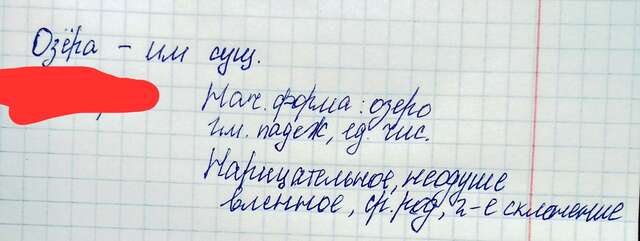 Озёра - им сущ.
Нач. форма: озеро
им. падеж, ед. чис.
Нарицательное, неодуше
вленное, ср. род, 2-е склонение